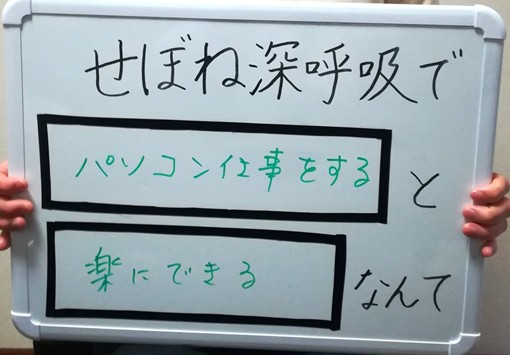 せぼね深呼吸で
パソコン仕事をすると
楽にできるなんて